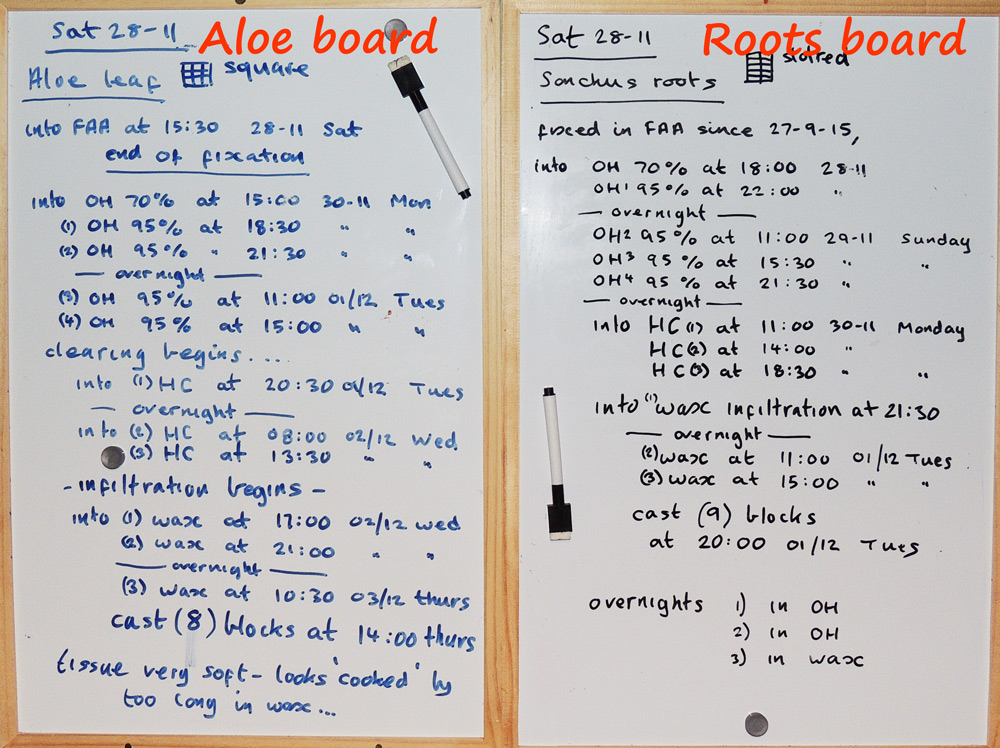 Aloe board
Sat 28-11
Aloe leaf square
into FAA at 15:30 28-11 Sat
end of fixation
into OH 70% at 15:00 30-11 Mon
(1) OH 95% at 18:30 " "
(2) OH 95% " 21:30 " "
— overnight —
(3) OH 95% at 11:00 01/12 Tues
(4) OH 95% at 15:00 " "
clearing begins....
into (1) HC at 20:30 01/12 Tues
— overnight —
into (2) HC at 08:00 02/12 Wed
(3) HC at 13:30 " "
- infiltration begins -
into (1) wax at 17:00 02/12 wed
(2) wax at 21:00 " "
— overnight —
(3) wax at 10:30 03/12 thurs
cast (8) blocks at 14:00 thurs
tissue very soft - looks 'cooked' by
too long in wax...
Roots board
Sat 28-11
Sonchus roots slotred
fixed in FAA since 27-9-15,
into OH 70% at 18:00 28-11
OH1 95% at 22:00 "
— overnight —
OH2 95% at 11:00 29-11 Sunday
OH3 95% at 15:30 " "
OH4 95% at 21:30 "
— overnight —
into HC (1) at 11:00 30-11 Monday
HC(2) at 14:00 "
HC(3) at 18:30 " "
into (1) wax infiltration at 21:30
— overnight —
(2) wax at 11:00 01/12 Tues
(3) wax at 15:00 " "
cast (9) blocks
at 20:00 01/12 Tues
overnights 1) in OH
2) in OH
3) in wax